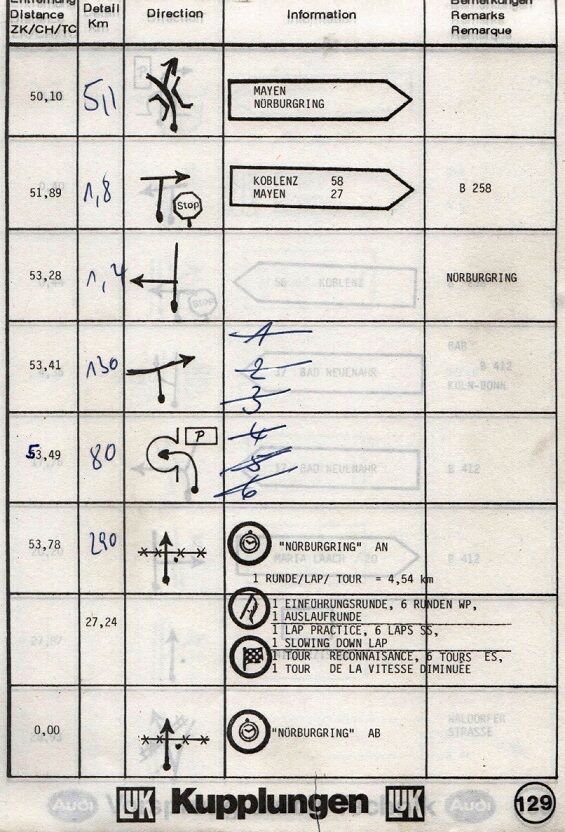 Entfernung
Distance
ZK/CH/TC
Detail
Km
Direction
Information
Bemerkungen
Remarks
Remarque
50,10
5,1
MAYEN
NÜRBURGRING
51,89
1,8
Stop
KOBLENZ 58
MAYEN 27
B 258
53,28
1,4
NÜRBURGRING
53,41
130
1
2
3
53,49
80
P
4
5
6
53,78
290
"NÜRBURGRING" AN
1 RUNDE/LAP/ TOUR = 4,54 km
27,24
1 EINFÜHRUNGSRUNDE, 6 RUNDEN WP,
1 AUSLAUFRUNDE
1 LAP PRACTICE, 6 LAPS SS,
1 SLOWING DOWN LAP
1 TOUR RECONNAISANCE, 6 TOURS ES,
1 TOUR DE LA VITESSE DIMINUEE
0,00
"NÜRBURGRING" AB
LUK Kupplungen LUK
129